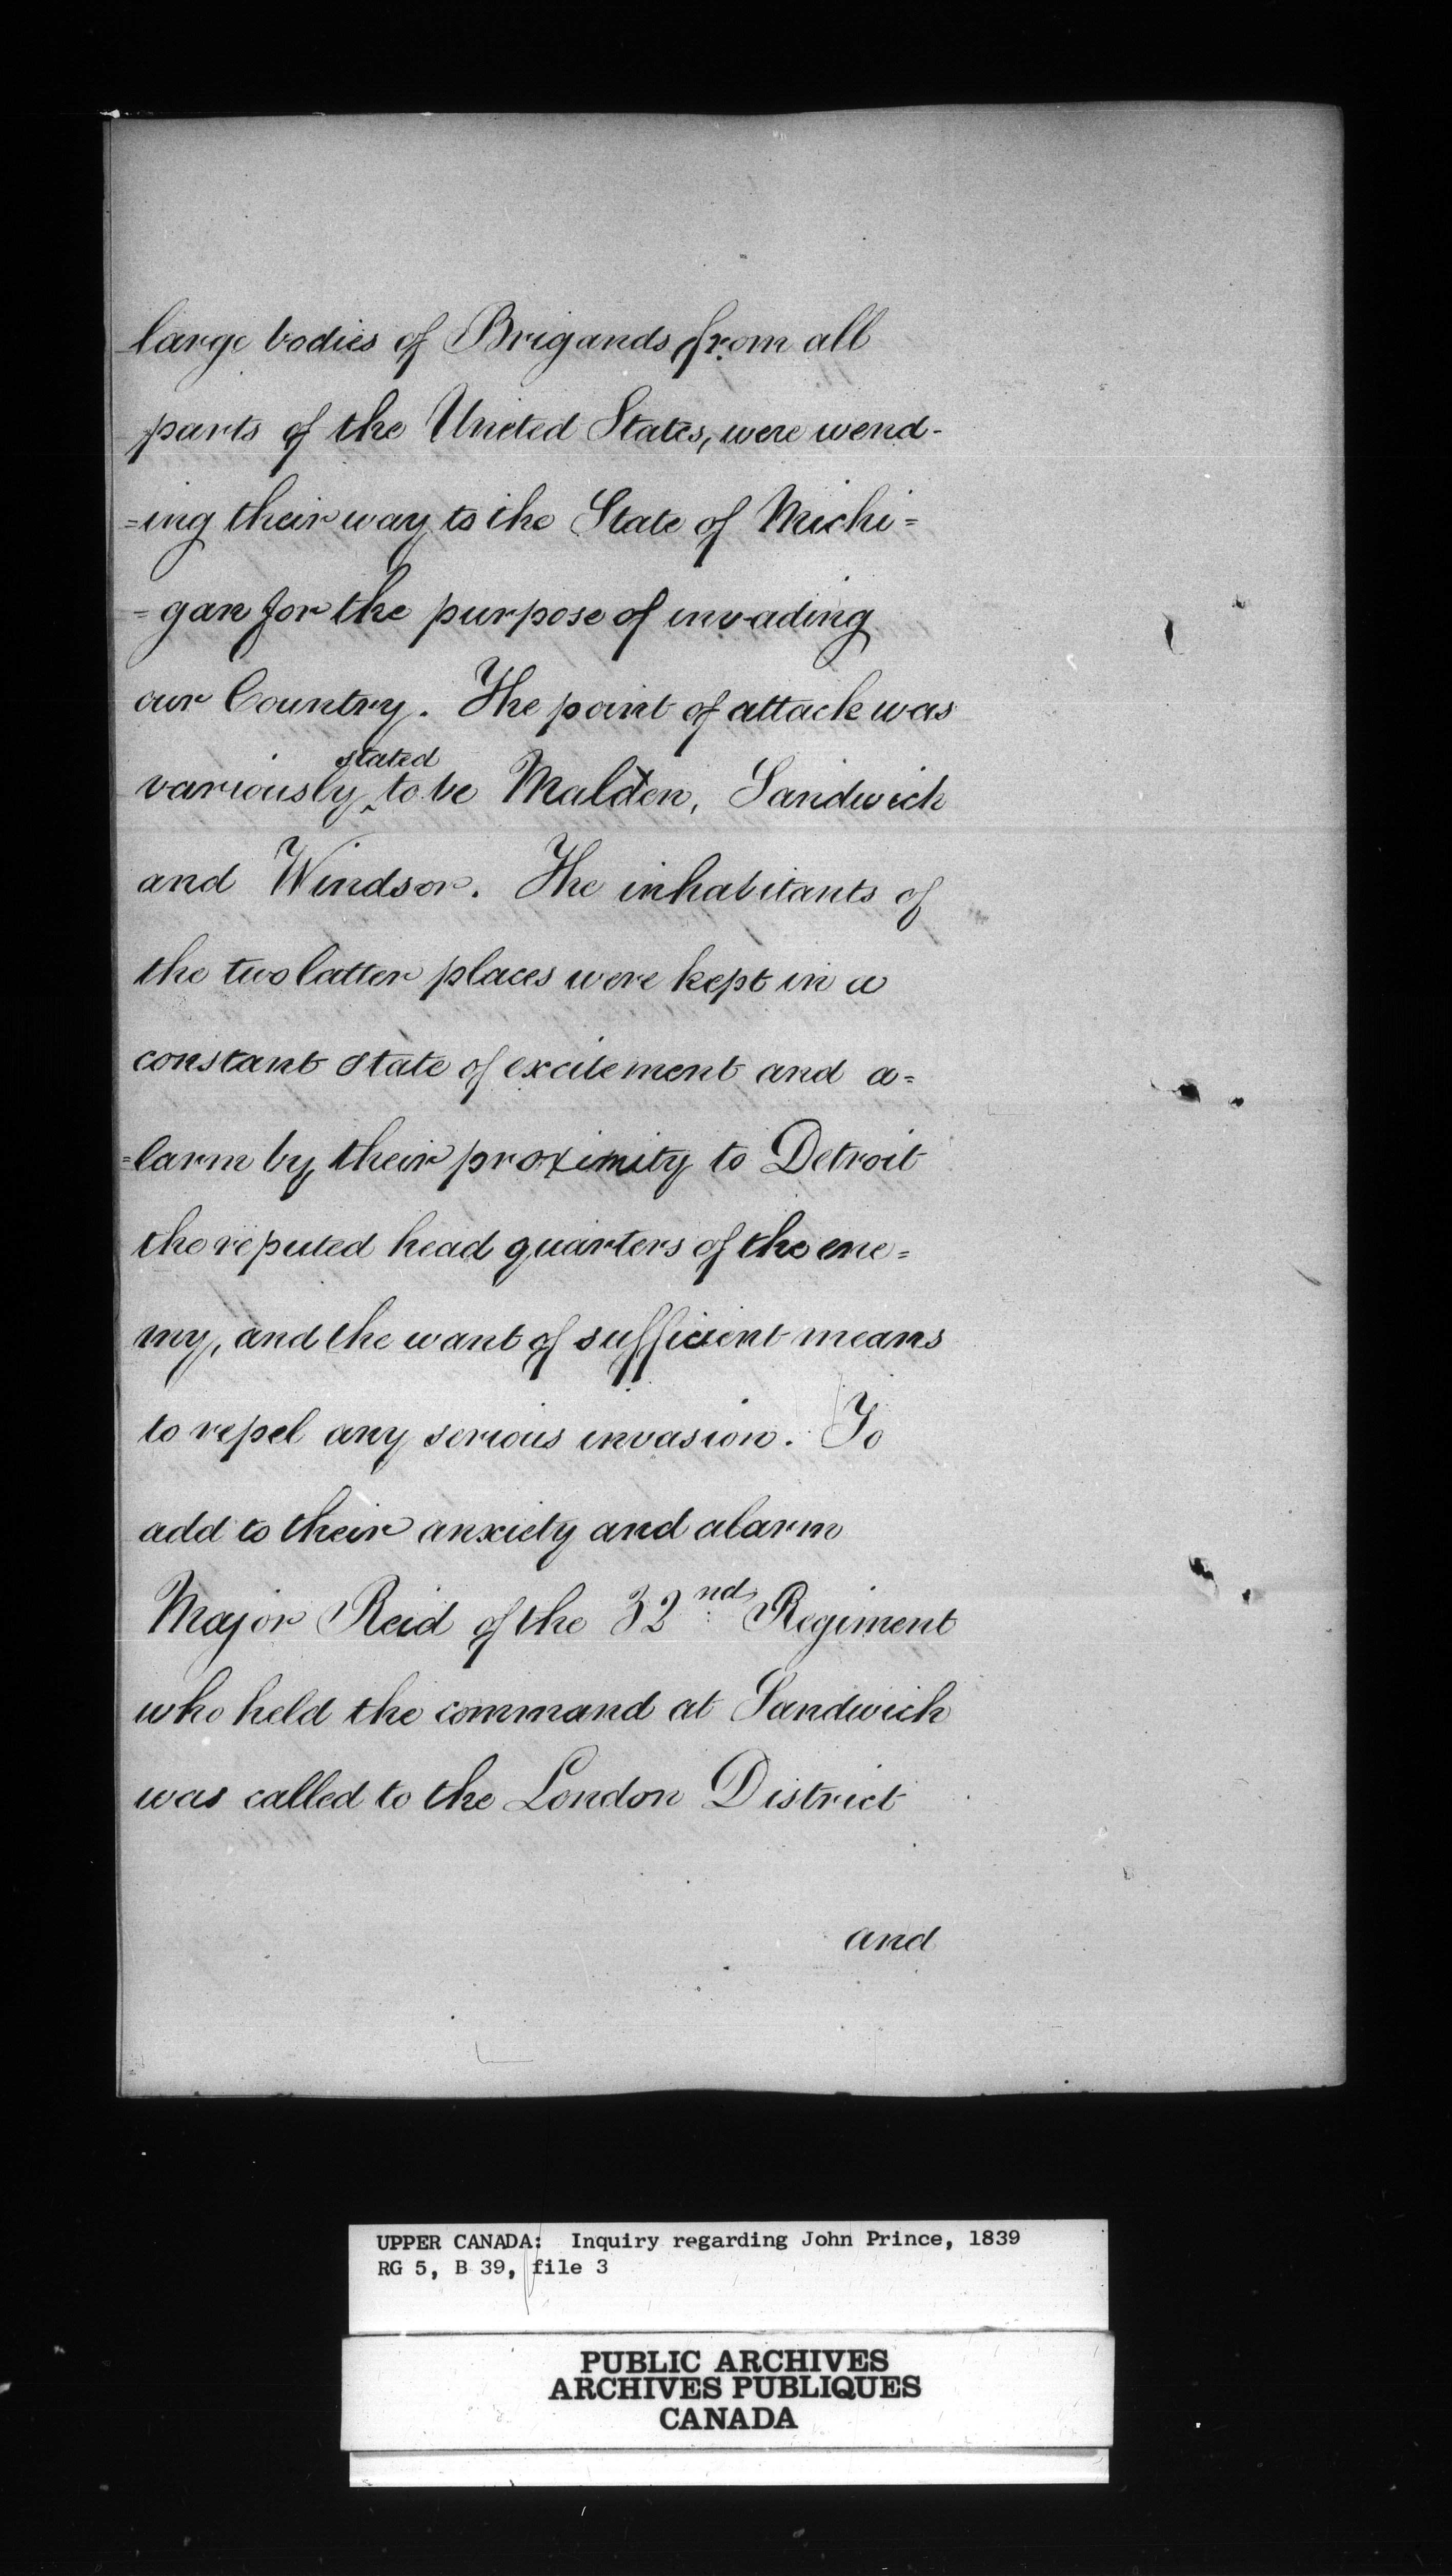 large bodies of Brigands from all
parts of the United States, were wend-
=ing their way to the State of Michi=
=gan for the purpose of invading
our Country. The point of attack was
stated
variously ‸ to be Malden, Sandwich
and Windsor. The inhabitants of
the two latter places were kept in a
constant state of excitement and a=
=larm by their proximity to Detroit
the reputed head quarters of the ene=
my, and the want of sufficient means
to repel any serious invasion. To
add to their anxiety and alarm
Major Reid of the 32nd Regiment
who held the command at Sandwich
was called to the London District
and
UPPER CANADA: Inquiry regarding John Prince, 1839
RG 5, B 39, file 3
PUBLIC ARCHIVES
ARCHIVES PUBLIQUES
CANADA